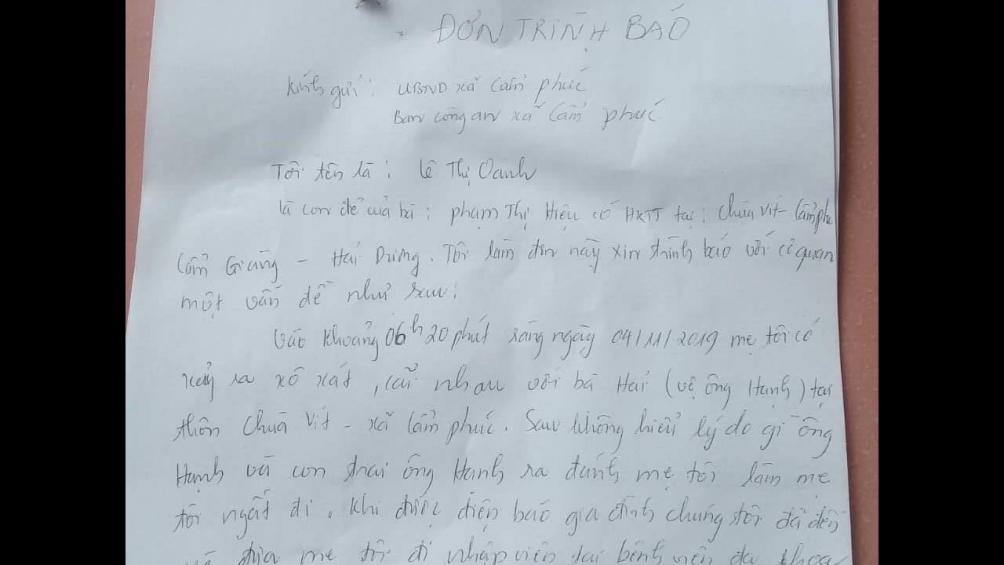 ĐƠN TRÌNH BÁO
Kính gửi: UBND xã Cẩm phúc
Ban công an xã Cẩm phúc
Tôi tên là: Lê Thị Oanh
là con đẻ của bà: phạm Thị Hiệu có HKTT tại: Chùa Vít - Cẩm phú
Cẩm Giàng - Hải Dương. Tôi làm đơn này xin trình báo với cơ quan
một vấn đề như sau:
Vào khoảng 06h 20 phút sáng ngày 04/11/2019 mẹ tôi có
xảy ra xô xát, cãi nhau với bà Hải (vợ ông Hạnh) tại
thôn Chùa Vít - xã Cẩm phúc. Sau không hiểu lý do gì ông
Hạnh và con trai ông Hạnh ra đánh mẹ tôi làm mẹ
tôi ngất đi. Khi được điện báo gia đình chúng tôi đã đến
và đưa mẹ tôi đi nhập viện tại bệnh viện đa khoa